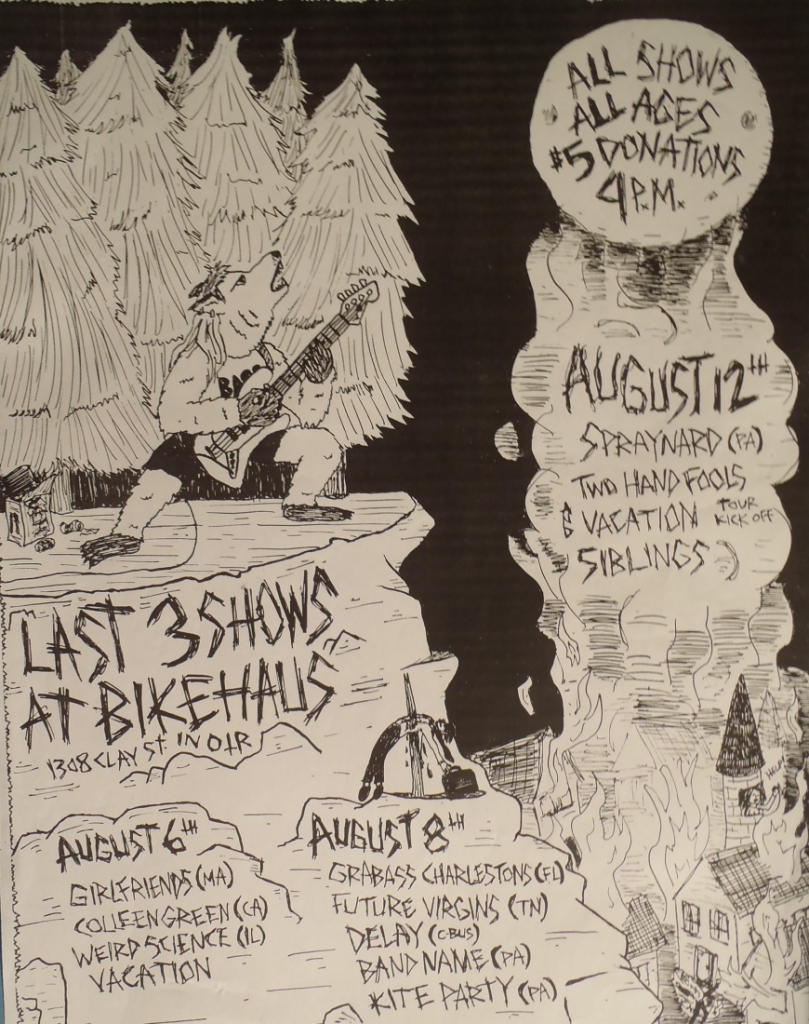 ALL SHOWS
ALL AGES
$5 DONATIONS
4 P.M.
AUGUST 12TH
SPRAYNARD (PA)
TWO HAND FOOLS
& VACATION TOUR KICK OFF
SIBLINGS
LAST 3 SHOWS
AT BIKEHAUS
1308 CLAY ST IN OTR
AUGUST 6TH
GIRLFRIENDS (MA)
COLLEEN GREEN (CA)
WEIRD SCIENCE (IL)
VACATION
AUGUST 8TH
GRABASS CHARLESTONS (FL)
FUTURE VIRGINS (TN)
DELAY (C-BUS)
BAND NAME (PA)
KITE PARTY (PA)